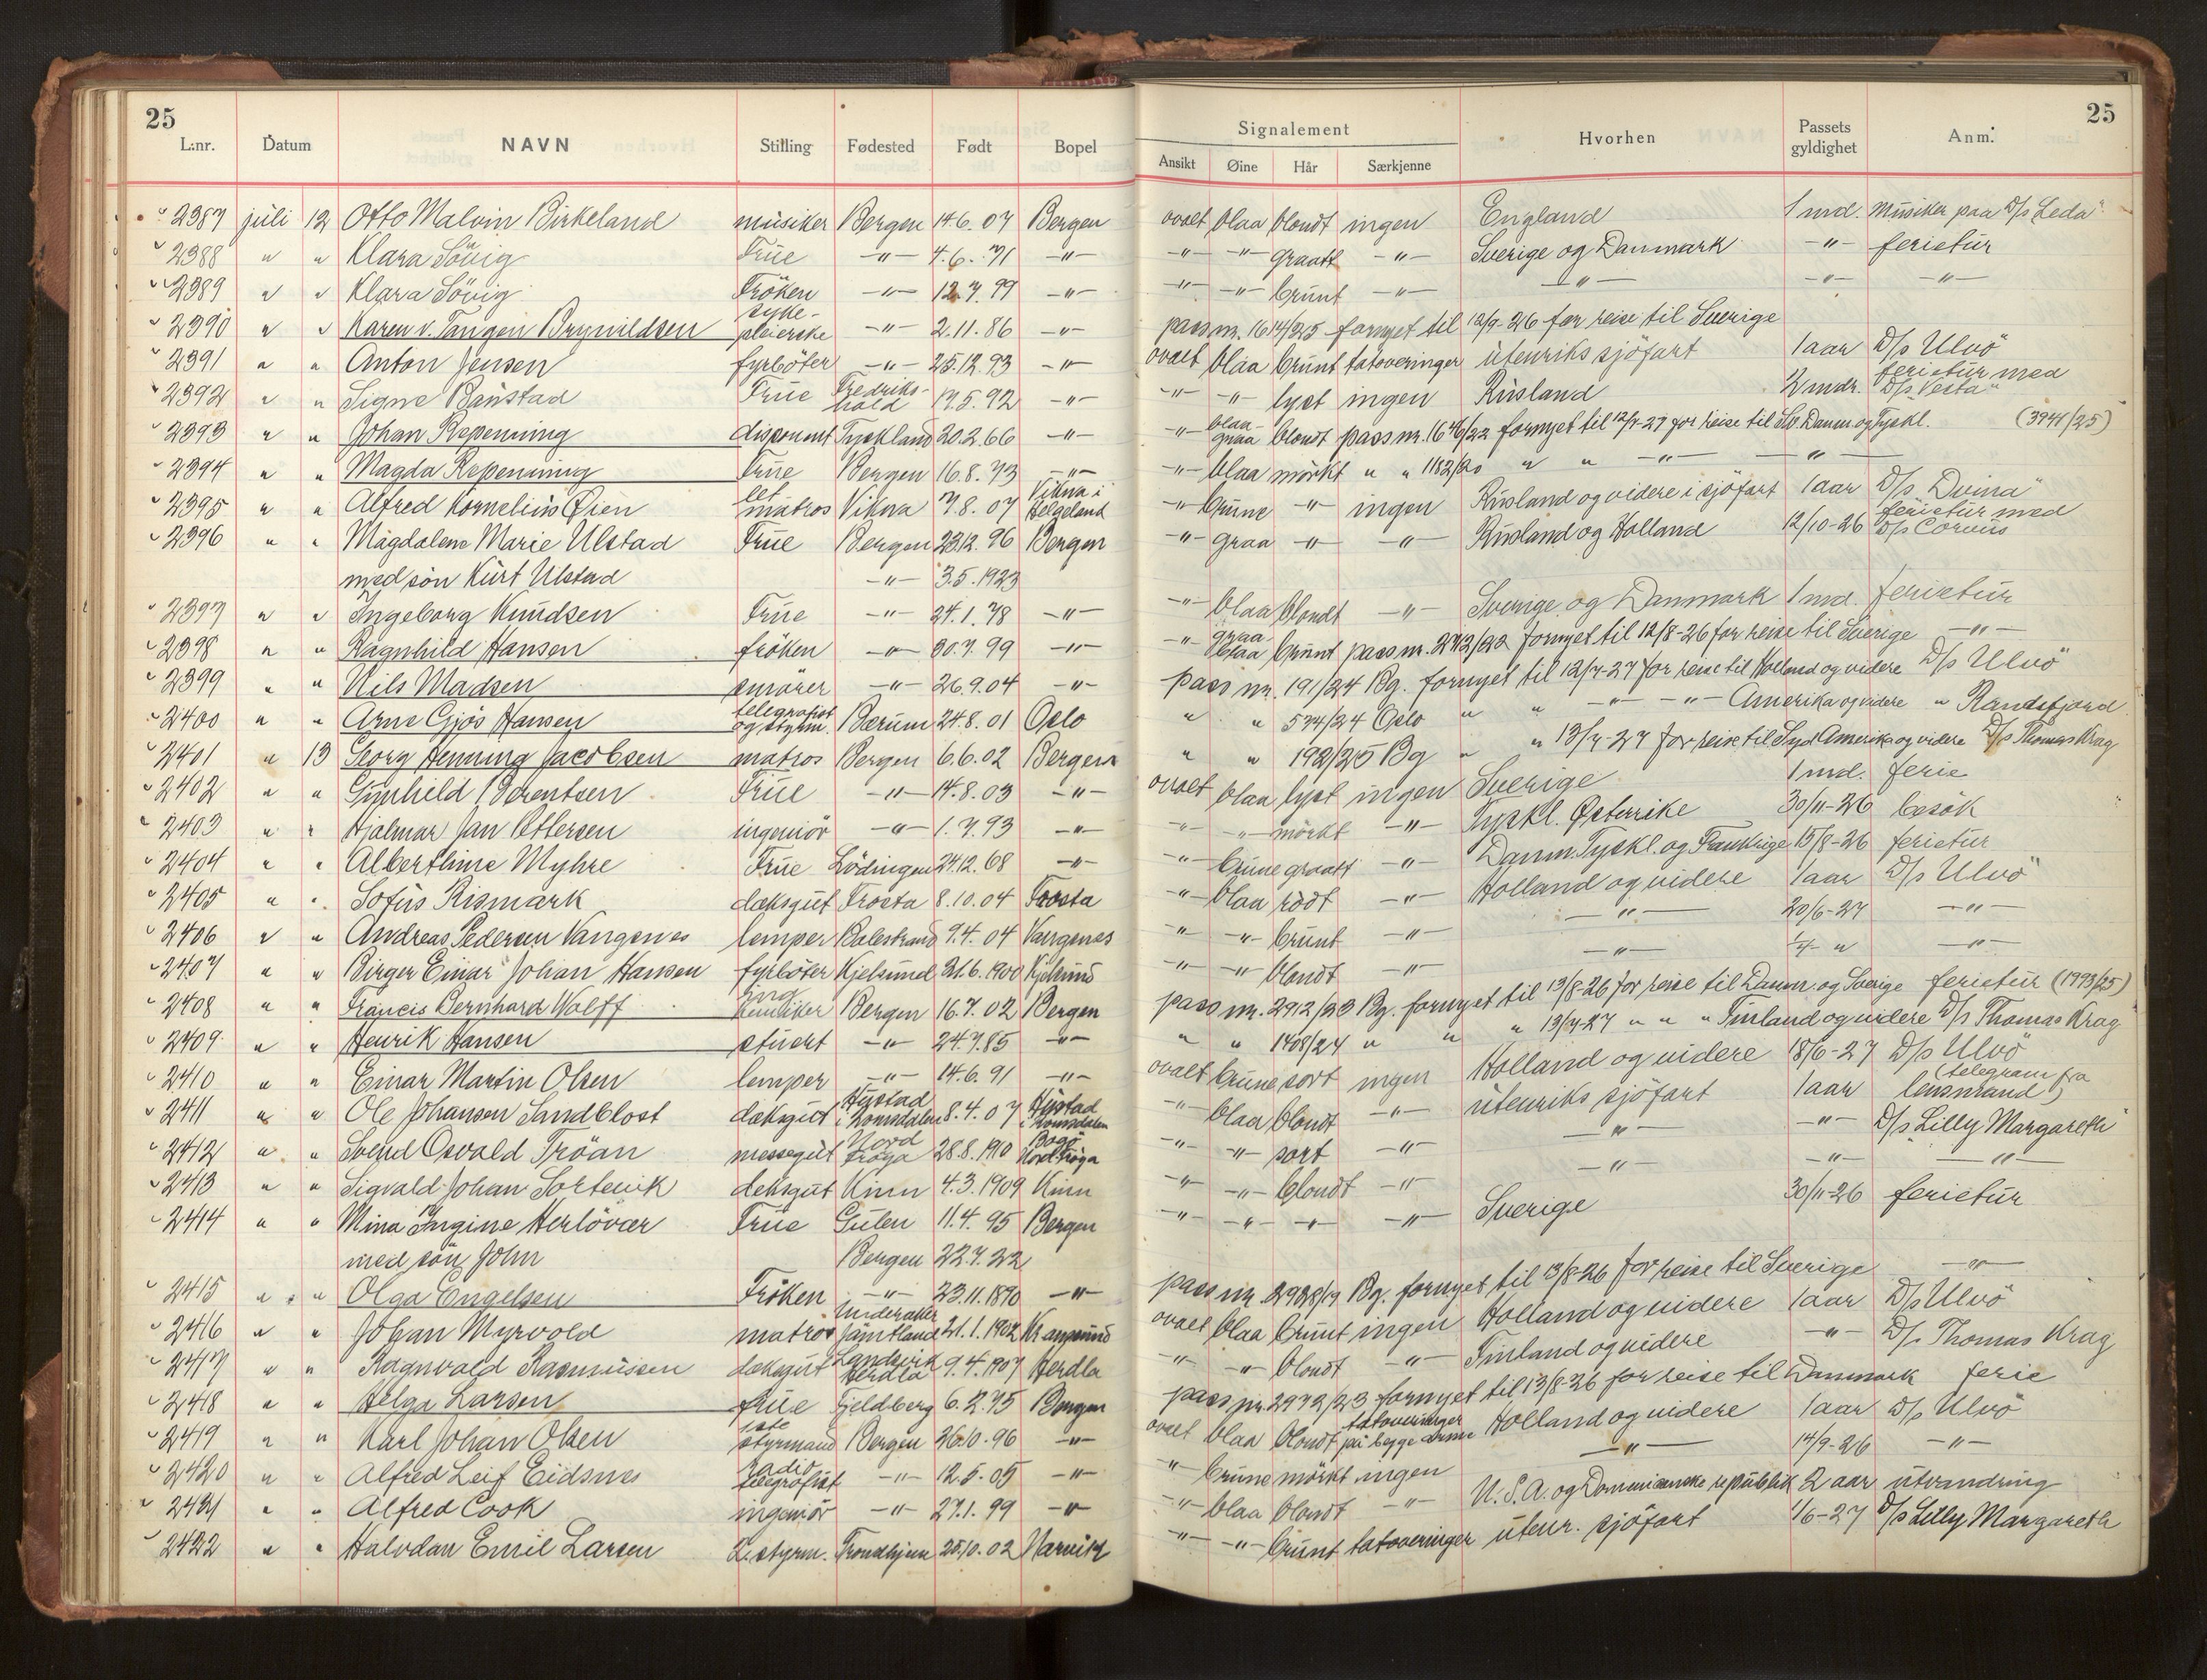 25
L:nr. Datum NAVN Stilling Fødested Født Bopel
2387 juli 12 Otto Malvin Birkeland musiker Bergen 14.6.07 Bergen
2388 " " Klara Sövig Frue -"- 4.6.71 -"-
2389 " " Klara Sövig Fröken -"- 12.7.99 -"-
2390 " " Karen v. Tangen Brynildsen sykepleierske -"- 2.11.86 -"-
2391 " " Anton Jensen fyrböter -"- 25.12.93 -"-
2392 " " Signe Baustad Frue Fredrikshald 17.5.92 -"-
2393 " " Johan Repenning disponent Tyskland 20.2.66 -"-
2394 " " Magda Repenning Frue Bergen 16.8.73 -"-
2395 " " Alfred Kornelius Øien let matros Vikna 7.8.07 Vikna i Helgeland
2396 " " Magdalene Marie Ulstad Frue Bergen 23.12.96 Bergen
med sön Kurt Ulstad -"- 3.5.1923
2397 " " Ingeborg Knudsen Frue -"- 24.1.78 -"-
2398 " " Ragnhild Hansen fröken -"- 30.7.99 -"-
2399 " " Nils Madsen smörer -"- 26.9.04 -"-
2400 " " Arne Gjös Hansen telegrafist og styrm. Bærum 24.8.01 Oslo
2401 " 13 Georg Henning Jacobsen matros Bergen 6.6.02 Bergen
2402 " " Gunhild Berentsen Frue -"- 14.8.03 -"-
2403 " " Hjalmar Jan Pettersen ingeniör -"- 1.7.93 -"-
2404 " " Alberthine Myhre Frue Lödingen 24.12.68 -"-
2405 " " Sofus Rismark dæksgut Frosta 8.10.04 Frosta
2406 " " Andreas Pedersen Vangsnes lemper Balestrand 9.4.04 Vangsnes
2407 " " Birger Einar Johan Hansen fyrböter Kjelsund 21.6.1900 Kjelsund
2408 " " Francis Bernhard Wolff ing. kemiker Bergen 16.7.02 Bergen
2409 " " Henrik Hansen stuert -"- 24.7.85 -"-
2410 " " Einar Martin Olsen lemper -"- 14.6.91 -"-
2411 " " Ole Johansen Sandblost dæksgut Hustad i Romsdalen 8.4.07 Hustad i Romsdalen
2412 " " Svend Osvald Fröan messegut Nord Fröya 28.8.1910 Bogö Nord Fröya
2413 " " Sigvald Johan Sortevik deksgut Kinn 4.3.1909 Kinn
2414 " " Mina Ingine Herlövær Frue Gulen 11.4.95 Bergen
med sön John Bergen 22.7.22
2415 " " Olga Engelsen Fröken -"- 23.11.1870 -"-
2416 " " Johan Myrvold matros Underaker Jämtland 21.1.1902 Kr.ansund
2417 " " Ragnvald Rasmussen dæksgut Landsvik Herdla 9.4.1907 Herdla
2418 " " Helga Larsen frue Fjeldberg 6.2.75 Bergen
2419 " " Karl Johan Olsen 1ste styrmand Bergen 26.10.96 -"-
2420 " " Alfred Leif Eidsnes Radio telegrafist -"- 12.5.05 -"-
2421 " " Alfred Cook ingeniör -"- 27.1.99 -"-
2422 " " Halvdan Emil Larsen 2. styrm. Trondhjem 25.10.02 Narvik
25
Signalement Hvorhen Passets gyldighet Anm.
Ansikt Øine Hår Særkjenne
ovalt blaa blondt ingen England 1 md. Musiker paa D/s "Leda"
-"- -"- graatt -"- Sverige og Danmark -"- ferietur
-"- -"- brunt -"- -"- -"- -"-
pass nr. 1614/25 fornyet til 12/9-26 for reise til Sverige
ovalt blaa brunt tatoveringer utenriks sjöfart 1 aar D/s Ulvö"
-"- -"- lyst ingen Rusland 2 mdr. ferietur med D/s "Vesta"
-"- blaa-graa blondt pass nr. 1646/22 fornyet til 12/7-27 for reise til Sv. Danm. og Tyskl. (3941/25)
-"- blaa mörkt " " 1182/20 " " -"- -"-
-"- brune -"- ingen Rusland og videre i sjöfart 1 aar D/s "Dvina"
-"- graa -"- -"- Rusland og Holland 12/10-26 ferietur med D/s Corvus
-"- blaa blondt -"- Sverige og Danmark 1 md. ferietur
-"- graa blaa brunt pass nr. 2712/22 fornyet til 12/8-26 for reise til Sverige -"-
pass nr. 191/24 Bg. fornyet til 12/7-27 for reise til Holland og videre D/s Ulvö"
" " 574/24 Oslo " " -"- -"- Amerika og videre " Randsfjord
" " 192/25 Bg " " 13/7-27 for reise til Syd Amerika og videre D/s Thomas Krag
ovalt blaa lyst ingen Sverige 1 md. ferie
-"- -"- mörkt -"- Tyskl. Østerrike 30/11-26 besök
-"- brune graatt -"- Danm. Tyskl. og Frankrige 15/8-26 ferietur
-"- blaa rödt -"- Holland og videre 1 aar D/s Ulvö"
-"- -"- brunt -"- -"- 20/6-27 -"-
-"- -"- blondt -"- -"- 1/7- " -"-
pass nr. 2912/23 Bg. fornyet til 13/8-26 for reise til Danm. og Sverige ferietur (1993/25)
" " 1408/24 " " " 13/7-27 " " " Finland og videre D/s Thomas Krag
ovalt brune sort ingen Holland og videre 18/6-27 D/s Ulvö"
-"- blaa blondt -"- utenriks sjöfart 1 aar (telegram fra lensmand)
-"- -"- sort -"- -"- -"- D/s "Lilly Margareth"
-"- -"- blondt -"- -"- -"- -"-
-"- -"- -"- -"- Sverige 30/11-26 ferietur
pass nr. 2928/19 Bg. fornyet til 13/8-26 for reise til Sverige -"-
ovalt blaa brunt ingen Holland og videre 1 aar D/s Ulvö"
-"- -"- blondt -"- Finland og videre -"- D/s Thomas Krag
pass nr. 2972/23 fornyet til 13/8-26 for reise til Danmark ferie
ovalt blaa blondt tatoveringer på begge arme Holland og videre 1 aar D/s Ulvö"
-"- brune mörkt ingen -"- 14/9-26 -"-
-"- blaa blondt -"- U.S.A. og Domenicanske republik 2 aar utvandring
-"- -"- brunt tatoveringer utenr. sjöfart 1/6-27 D/s Lilly Margareth